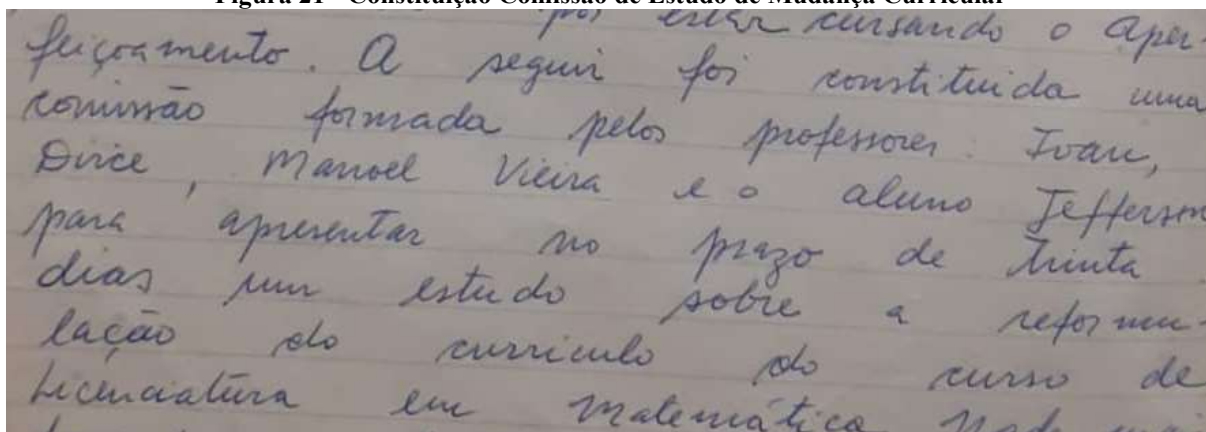 Figura 21 - Constituição Comissão de Estudo de Mudança Curricular
por estar cursando o aper-
feiçoamento. A seguir foi constituida uma
comissão formada pelos professores: Ivan,
Dirce, Manoel Vieira e o aluno Jefferson
para apresentar no prazo de trinta
dias um estudo sobre a reformu-
lação do curriculo do curso de
Licenciatura em matemática Nada